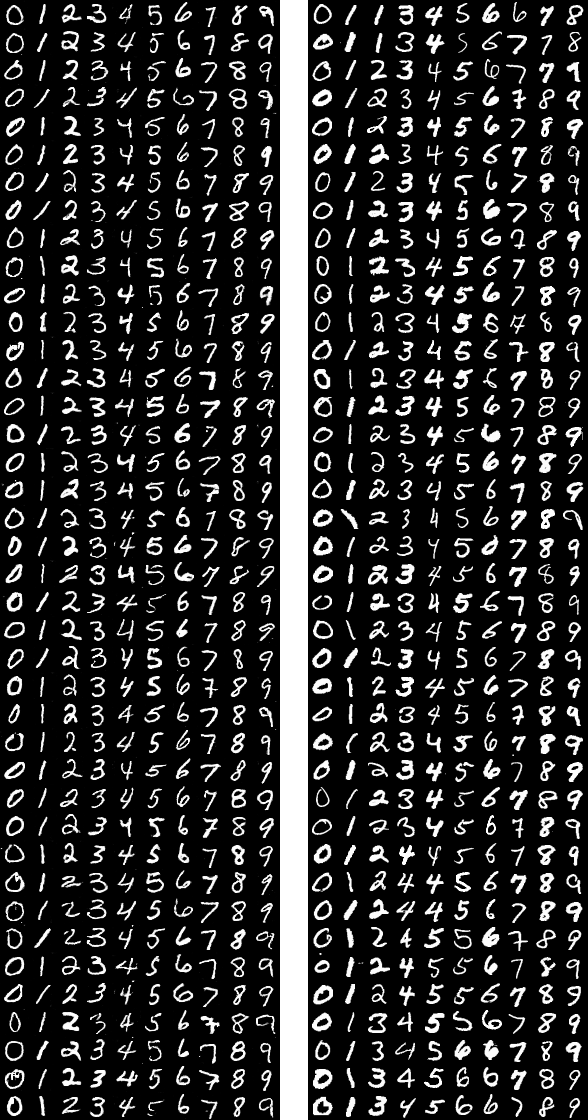 0 1 2 3 4 5 6 7 8 9
0 1 2 3 4 5 6 7 8 9
0 1 2 3 4 5 6 7 8 9
0 1 2 3 4 5 6 7 8 9
0 1 2 3 4 5 6 7 8 9
0 1 2 3 4 5 6 7 8 9
0 1 2 3 4 5 6 7 8 9
0 1 2 3 4 5 6 7 8 9
0 1 2 3 4 5 6 7 8 9
0 1 2 3 4 5 6 7 8 9
0 1 2 3 4 5 6 7 8 9
0 1 2 3 4 5 6 7 8 9
0 1 2 3 4 5 6 7 8 9
0 1 2 3 4 5 6 7 8 9
0 1 2 3 4 5 6 7 8 9
0 1 2 3 4 5 6 7 8 9
0 1 2 3 4 5 6 7 8 9
0 1 2 3 4 5 6 7 8 9
0 1 2 3 4 5 6 7 8 9
0 1 2 3 4 5 6 7 8 9
0 1 2 3 4 5 6 7 8 9
0 1 2 3 4 5 6 7 8 9
0 1 2 3 4 5 6 7 8 9
0 1 2 3 4 5 6 7 8 9
0 1 2 3 4 5 6 7 8 9
0 1 2 3 4 5 6 7 8 9
0 1 2 3 4 5 6 7 8 9
0 1 2 3 4 5 6 7 8 9
0 1 2 3 4 5 6 7 8 9
0 1 2 3 4 5 6 7 8 9
0 1 2 3 4 5 6 7 8 9
0 1 2 3 4 5 6 7 8 9
0 1 2 3 4 5 6 7 8 9
0 1 2 3 4 5 6 7 8 9
0 1 2 3 4 5 6 7 8 9
0 1 2 3 4 5 6 7 8 9
0 1 2 3 4 5 6 7 8 9
0 1 2 3 4 5 6 7 8 9
0 1 2 3 4 5 6 7 8 9
0 1 2 3 4 5 6 7 8 9
0 1 1 3 4 5 6 6 7 8
0 1 1 3 4 5 6 7 7 8
0 1 2 3 4 5 6 7 7 9
0 1 2 3 4 5 6 7 8 9
0 1 2 3 4 5 6 7 8 9
0 1 2 3 4 5 6 7 8 9
0 1 2 3 4 5 6 7 8 9
0 1 2 3 4 5 6 7 8 9
0 1 2 3 4 5 6 7 8 9
0 1 2 3 4 5 6 7 8 9
0 1 2 3 4 5 6 7 8 9
0 1 2 3 4 5 6 7 8 9
0 1 2 3 4 5 6 7 8 9
0 1 2 3 4 5 6 7 8 9
0 1 2 3 4 5 6 7 8 9
0 1 2 3 4 5 6 7 8 9
0 1 2 3 4 5 6 7 8 9
0 1 2 3 4 5 6 7 8 9
0 1 2 3 4 5 6 7 8 9
0 1 2 3 4 5 6 7 8 9
0 1 2 3 4 5 6 7 8 9
0 1 2 3 4 5 6 7 8 9
0 1 2 3 4 5 6 7 8 9
0 1 2 3 4 5 6 7 8 9
0 1 2 3 4 5 6 7 8 9
0 1 2 3 4 5 6 7 8 9
0 1 2 3 4 5 6 7 8 9
0 1 2 3 4 5 6 7 8 9
0 1 2 3 4 5 6 7 8 9
0 1 2 3 4 5 6 7 8 9
0 1 2 4 4 5 6 7 8 9
0 1 2 4 4 5 6 7 8 9
0 1 2 4 4 5 6 7 8 9
0 1 2 4 5 5 6 7 8 9
0 1 2 4 5 5 6 7 8 9
0 1 2 4 5 5 6 7 8 9
0 1 3 4 5 5 6 7 8 9
0 1 3 4 5 6 6 7 8 9
0 1 3 4 5 6 6 7 8 9
0 1 3 4 5 6 6 7 8 9